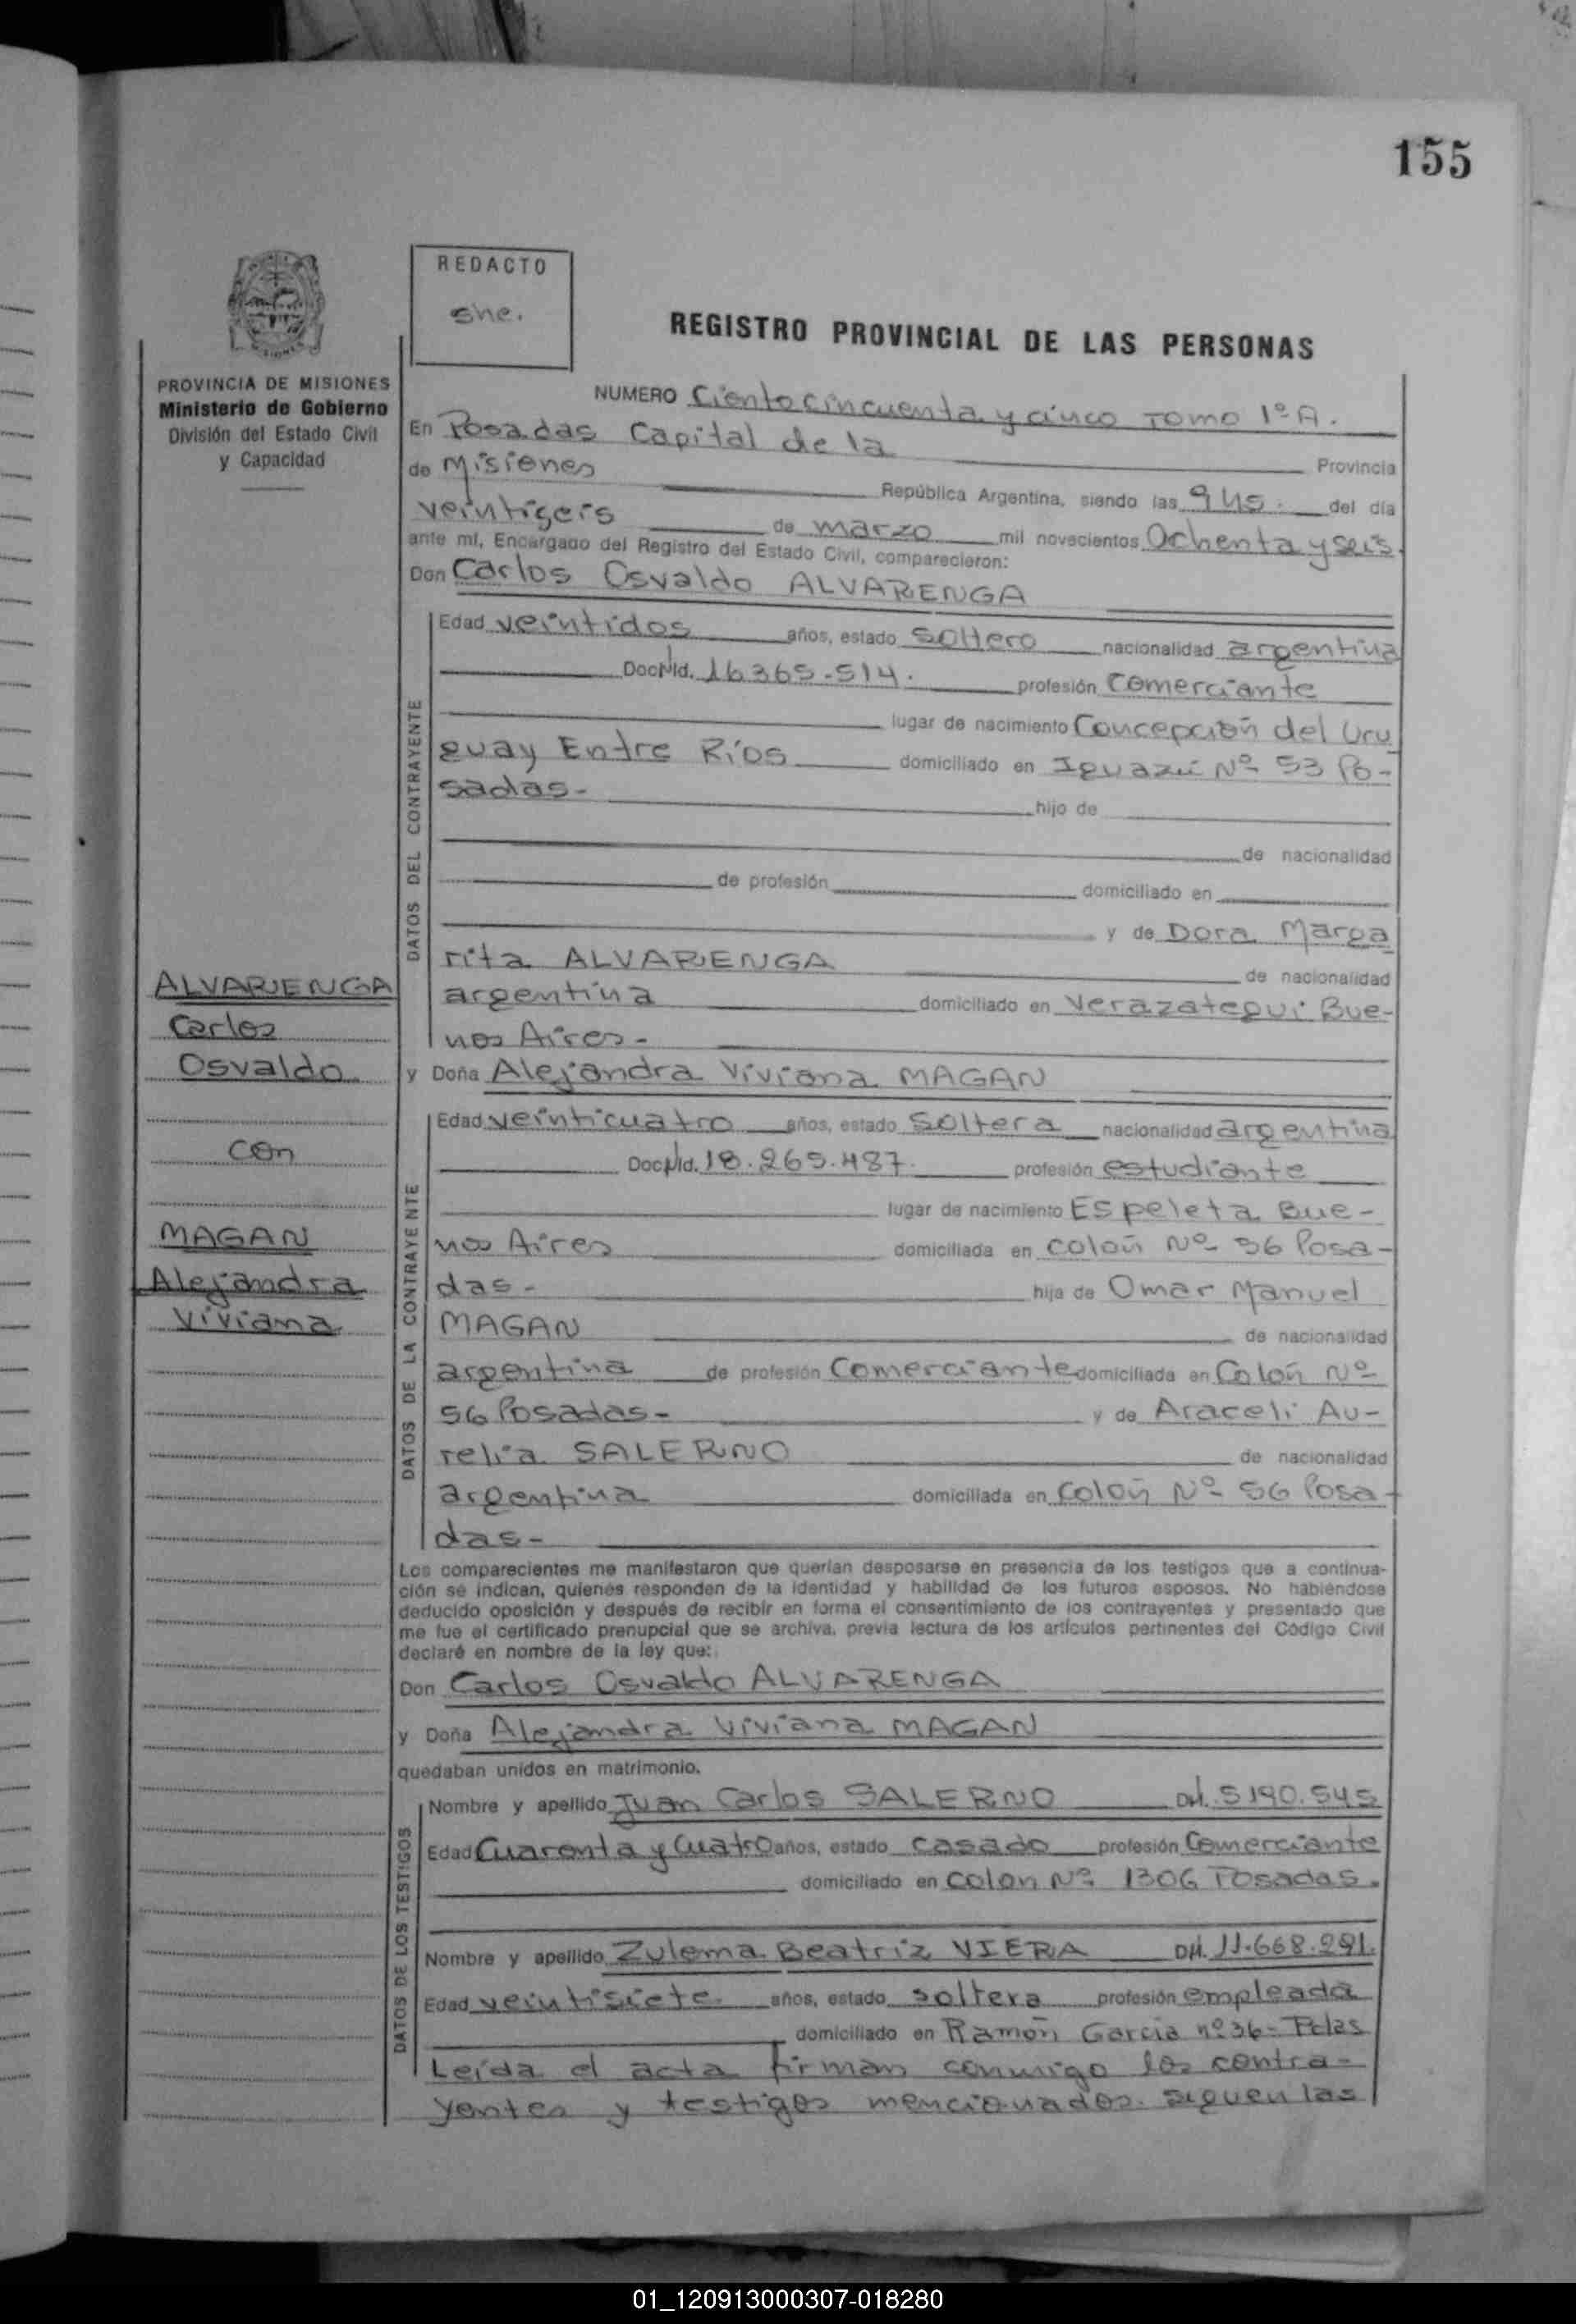 155
REDACTO
she.
REGISTRO PROVINCIAL DE LAS PERSONAS
PROVINCIA DE MISIONES
Ministerio de Gobierno
División del Estado Civil
y Capacidad
NUMERO Ciento cincuenta y cinco Tomo 1º A.
En Posadas Capital de la
de Misiones Provincia
República Argentina, siendo las 9 Hs. del día
veintiseis de marzo mil novecientos Ochenta y seis.
ante mí, Encargado del Registro del Estado Civil, comparecieron:
Don Carlos Osvaldo ALVARENGA
DATOS DEL CONTRAYENTE
Edad veintidos años, estado soltero nacionalidad argentina
Doc. Id. 16365.514. profesión comerciante
lugar de nacimiento Concepción del Uru
guay Entre Ríos domiciliado en Iguazú Nº 53 Po-
sadas- hijo de
de nacionalidad
de profesión domiciliado en
y de Dora Marga
rita ALVARENGA de nacionalidad
argentina domiciliado en Verazategui Bue-
nos Aires-
y Doña Alejandra Viviana MAGAN
DATOS DE LA CONTRAYENTE
Edad veinticuatro años, estado soltera nacionalidad argentina
Doc. Id. 18.265.487. profesión estudiante
lugar de nacimiento Espeleta Bue-
nos Aires domiciliada en colón Nº 56 Posa-
das- hija de Omar Manuel
MAGAN de nacionalidad
argentina de profesión Comerciante domiciliada en Colón Nº
56 Posadas- y de Araceli Au-
relia SALERNO de nacionalidad
argentina domiciliada en colón Nº 56 Posa-
das-
ALVARENGA
Carlos
Osvaldo
con
MAGAN
Alejandra
Viviana
Los comparecientes me manifestaron que querían desposarse en presencia de los testigos que a continua-
ción se indican, quienes responden de la identidad y habilidad de los futuros esposos. No habiéndose
deducido oposición y después de recibir en forma el consentimiento de los contrayentes y presentado que
me fue el certificado prenupcial que se archiva, previa lectura de los artículos pertinentes del Código Civil
declaré en nombre de la ley que:
Don Carlos Osvaldo ALVARENGA
y Doña Alejandra Viviana MAGAN
quedaban unidos en matrimonio.
DATOS DE LOS TESTIGOS
Nombre y apellido Juan Carlos SALERNO DNI. 5190.545
Edad Cuarenta y Cuatro años, estado casado profesión Comerciante
domiciliado en colon Nº 1306 Posadas.
Nombre y apellido Zulema Beatriz VIERA DNI. 11.668.291.
Edad veintisiete años, estado soltera profesión empleada
domiciliado en Ramón García nº 36- Pdas
Leída el acta firman conmigo los contra-
yentes y testigos mencionados. siguen las
01_120913000307-018280